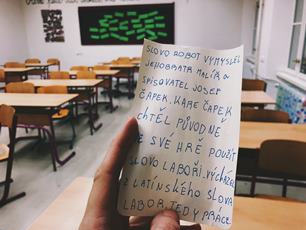 SLOVO ROBOT VYMYSLEL
JEHO BRATR MALÍŘ A
SPISOVATEL JOSEF
ČAPEK. KAREL ČAPEK
CHTĚL PŮVODNĚ
VE SVÉ HŘE POUŽÍT
SLOVO LABOŘI. VYCHÁZEL
Z LATINSKÉHO SLOVA
LABOR, TEDY PRÁCE